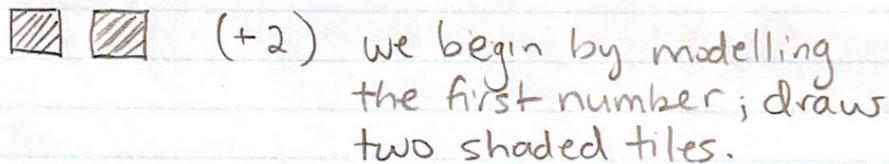 (+2) we begin by modelling
the first number; draw
two shaded tiles.